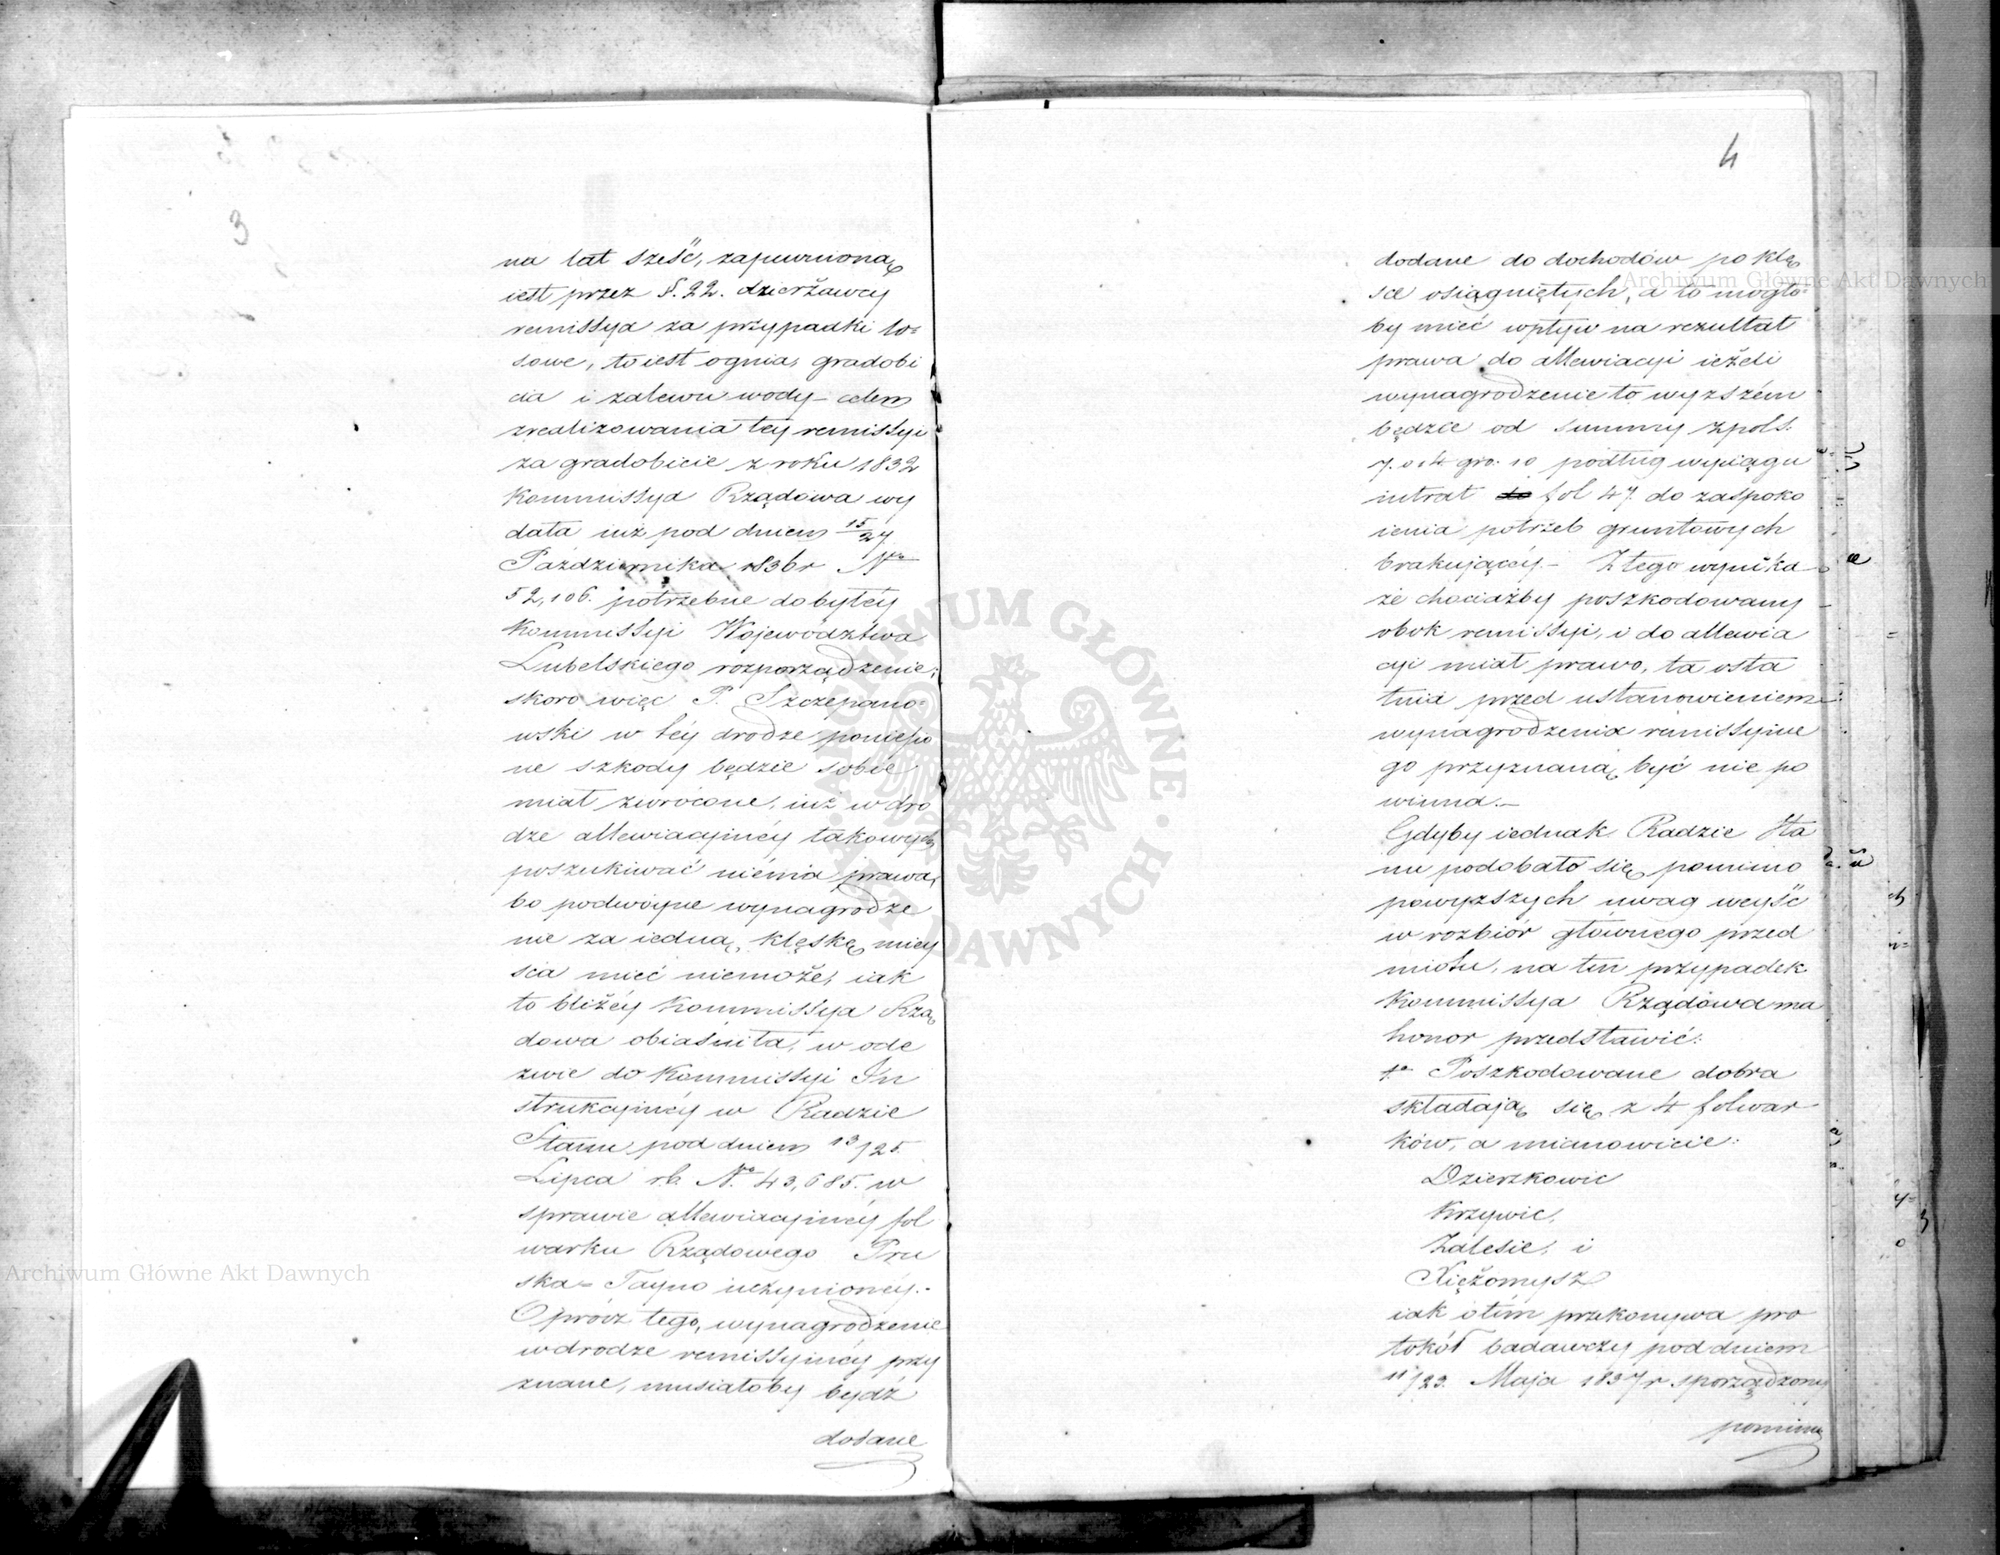 3
na lat sześć, zapewnioną
iest przez §. 22. dzierżawcy
remissya za przypadki lo=
sowe, to iest ognia, gradobi
cia i zalewu wody – celem
zrealizowania tey remissyi
za gradobicie z roku 1832
Kommissya Rządowa wy
dała iuż pod dniem 15/27
Października 1836 r No
52,106. potrzebne do byłéy
Kommissyi Województwa
Lubelskiego rozporządzenie;
skoro więc P. Szczepano=
wski w téy drodze poniesio
ne szkody będzie sobie
miał zwrócone, iuż w dro
dze allewiacyinéy takowych
poszukiwać niéma prawa,
bo podwóyne wynagrodze
nie za iedną klęskę miey
sca mieć niemoże, iak
to bliżéy Kommissya Rzą
dowa obiaśniła, w ode
zwie do Kommissyi In
strukcyinéy w Radzie
Stanu pod dniem 13/25.
Lipca r.b. No. 43,685. w
sprawie allewiacyinéy fol
warku Rządowego Pru
ska = Tayno uczynionéy.-
Oprócz tego, wynagrodzenie
w drodze remissyinéy przy
znane, musiałoby bydź
dodane
4
dodane do dochodów po klę
sce osiągniętych, a to mogło=
by mieć wpływ na rezultat
prawa do allewiacyi ieżeli
wynagrodzenie to wyższém
będzie od summy zpols.
7.014 gro. 10 podług wyciągu
intrat fol 47. do zaspoko
ienia potrzeb gruntowych
brakuiącéy – Z tego wynika
że chociażby poszkodowany
obok remissyi, i do allewia
cyi miał prawo, ta osta
tnia przed ustanowieniem
wynagrodzenia remissyine
go przyznaną być nie po
winna.–
Gdyby iednak Radzie Sta
nu podobało się pomimo
powyższych uwag weyść
w rozbiór głównego przed
miotu, na ten przypadek
Kommissya Rządowa ma
honor przedstawić:
1o Poszkodowane dobra
składaią się z 4 folwar
ków, a mianowicie:
Dzierzkowic
Krzywic,
Zalesie, i
Xiężomysz
iak o tém przekonywa pro
tokół badawczy pod dniem
11/23. Maja 1837 r sporządzony
pomimo
Archiwum Główne Akt Dawnych
Archiwum Główne Akt Dawnych
ARCHIWUM GŁÓWNE AKT DAWNYCH